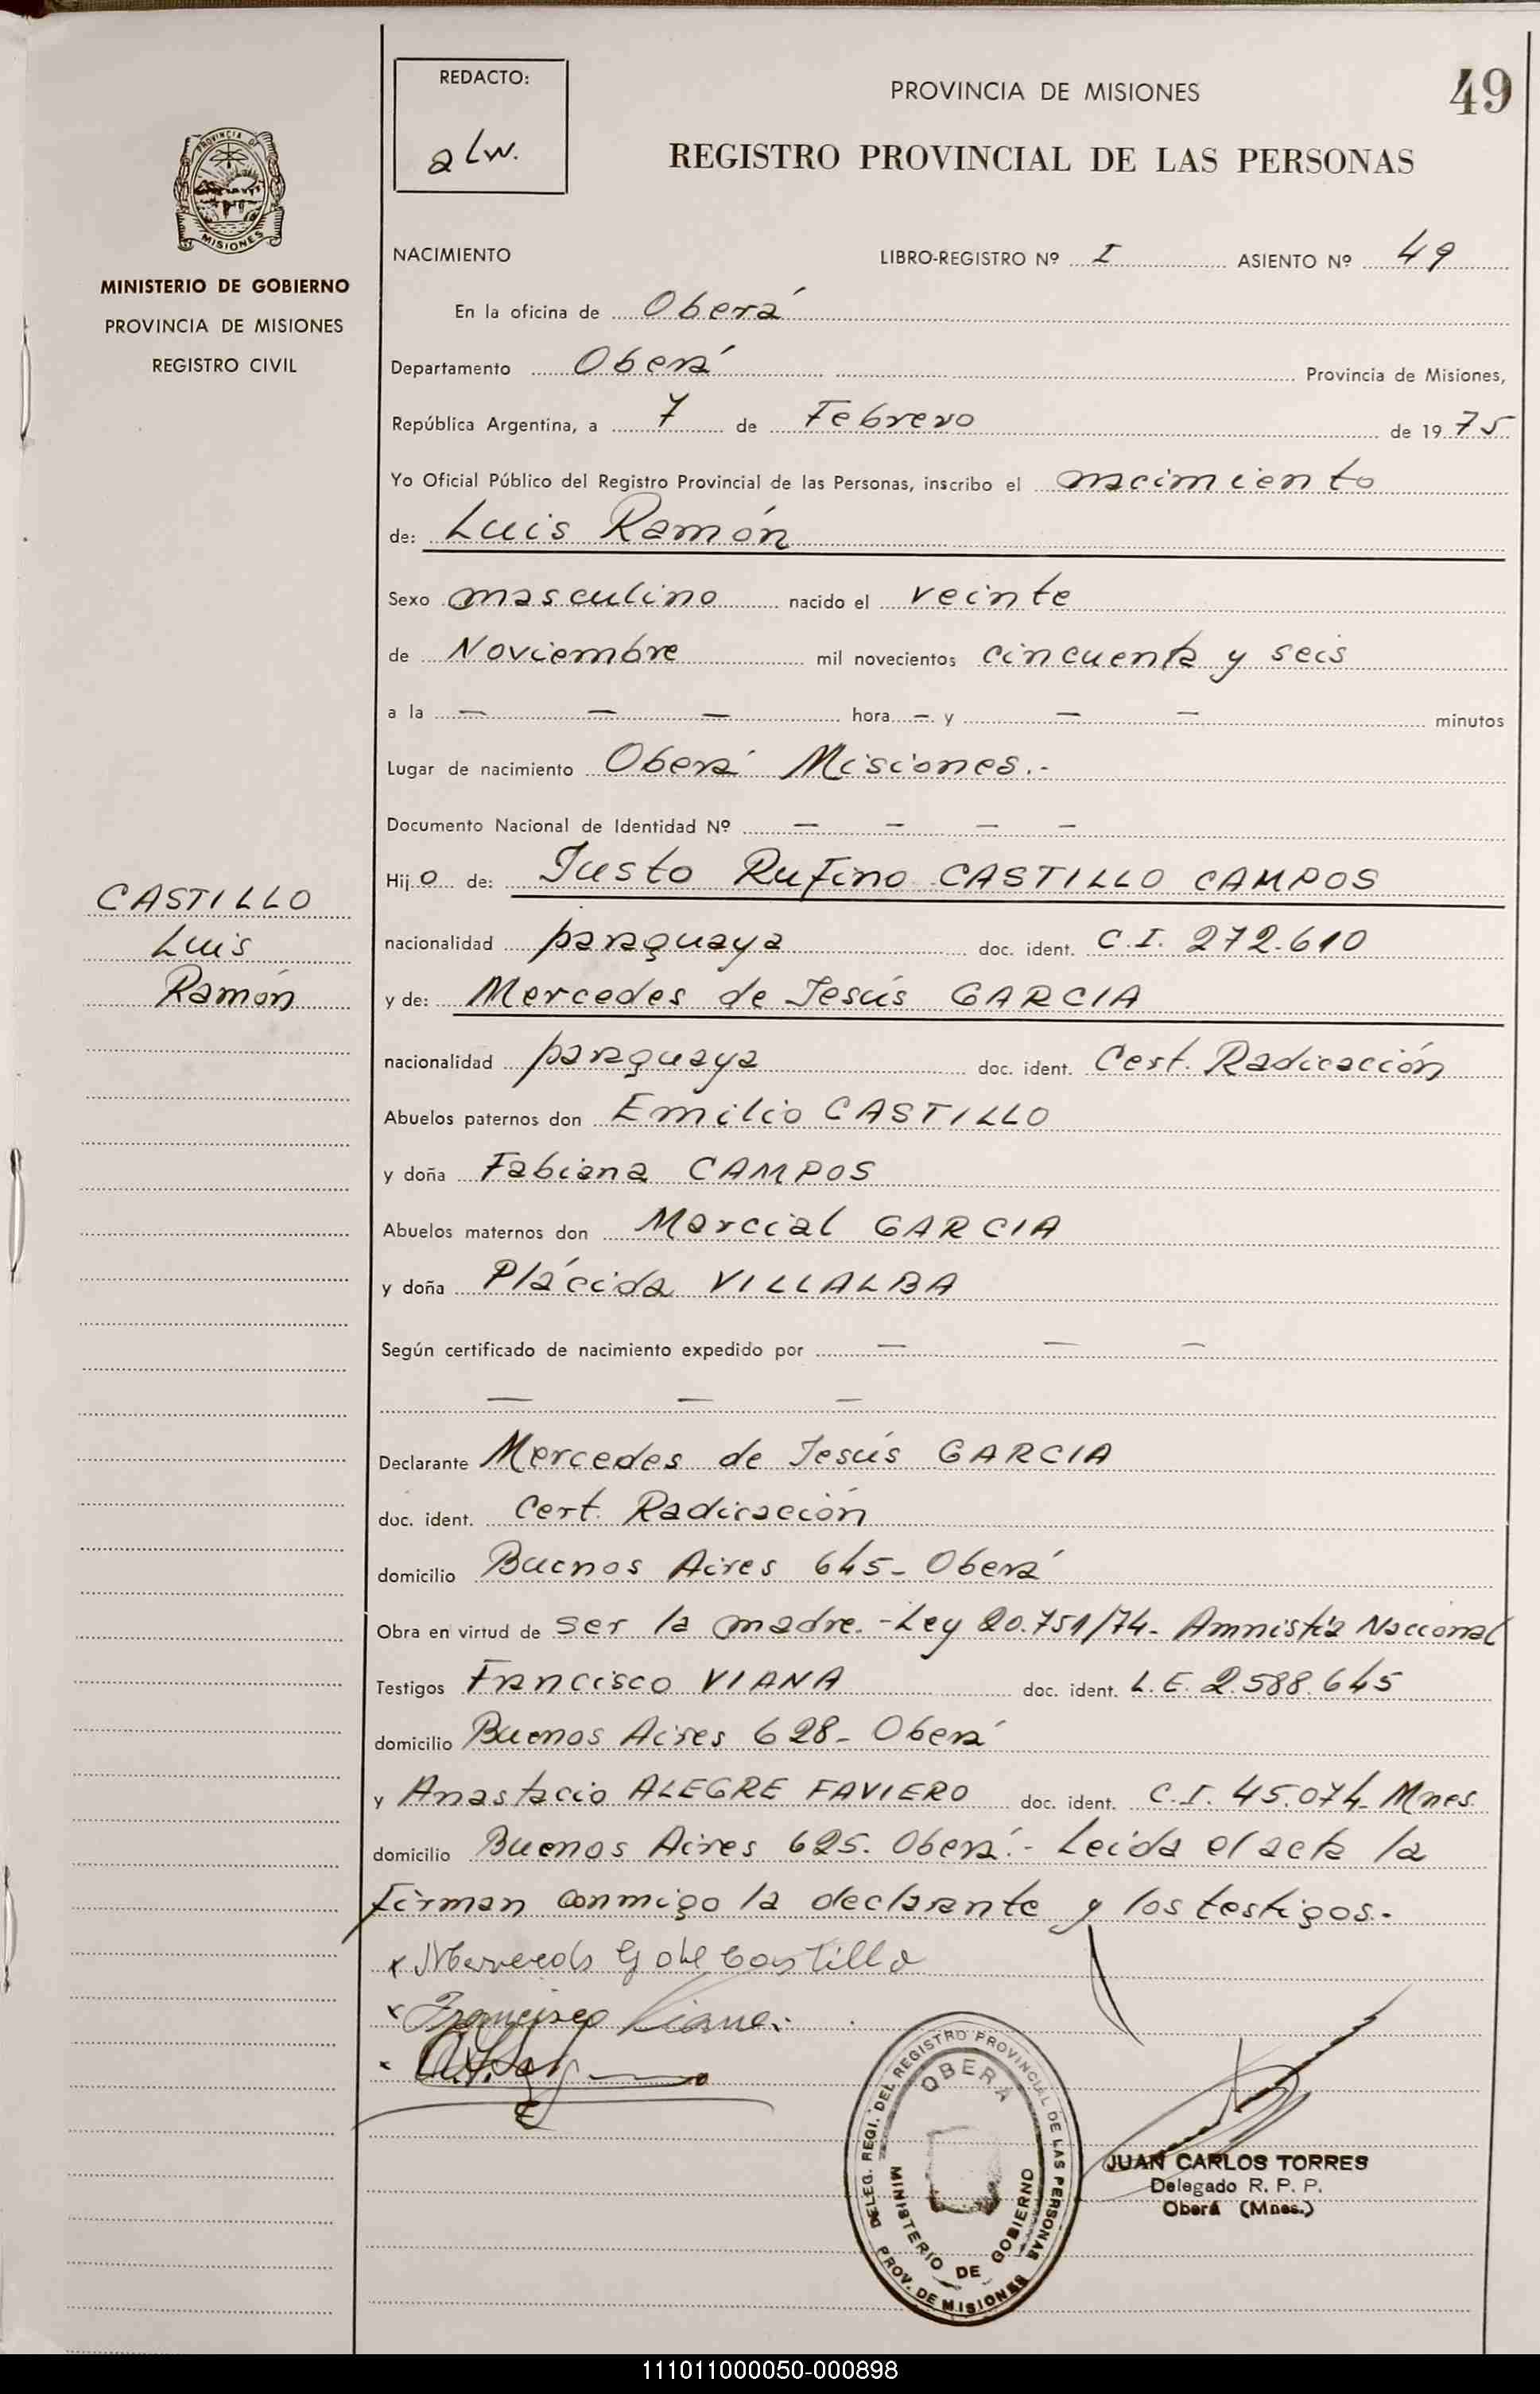 REDACTO:
alw.
PROVINCIA DE MISIONES
49
REGISTRO PROVINCIAL DE LAS PERSONAS
PROVINCIA DE
MISIONES
MINISTERIO DE GOBIERNO
PROVINCIA DE MISIONES
REGISTRO CIVIL
NACIMIENTO LIBRO-REGISTRO Nº I ASIENTO Nº 49
En la oficina de Oberá
Departamento Oberá Provincia de Misiones,
República Argentina, a 7 de Febrero de 1975
Yo Oficial Público del Registro Provincial de las Personas, inscribo el nacimiento
de: Luis Ramón
Sexo masculino nacido el veinte
de Noviembre mil novecientos cincuenta y seis
a la — — — hora — y — — minutos
Lugar de nacimiento Oberá Misiones.-
Documento Nacional de Identidad Nº — — — —
Hijo de: Justo Rufino CASTILLO CAMPOS
CASTILLO
Luis
Ramón
nacionalidad paraguaya doc. ident. C.I. 272.610
y de: Mercedes de Jesús GARCIA
nacionalidad paraguaya doc. ident. Cert. Radicación
Abuelos paternos don Emilio CASTILLO
y doña Fabiana CAMPOS
Abuelos maternos don Marcial GARCIA
y doña Plácida VILLALBA
Según certificado de nacimiento expedido por — — —
— — —
Declarante Mercedes de Jesús GARCIA
doc. ident. Cert. Radicación
domicilio Buenos Aires 645- Oberá
Obra en virtud de ser la madre.-Ley 20.751/74- Amnistía Nacional
Testigos Francisco VIANA doc. ident. L.E. 2.588.645
domicilio Buenos Aires 628- Oberá
y Anastacio ALEGRE FAVIERO doc. ident. C.I. 45.074- Mnes.
domicilio Buenos Aires 625. Oberá.- Leida el acta la
firman conmigo la declarante y los testigos.-
x Merceds G de Castillo
x Francisco Viana.
DELEG. REGI. DEL REGISTRO PROVINCIAL DE LAS PERSONAS
OBERÁ
MINISTERIO DE GOBIERNO
PROV. DE MISIONES
JUAN CARLOS TORRES
Delegado R. P. P.
Oberá (Mnes.)
111011000050-000898